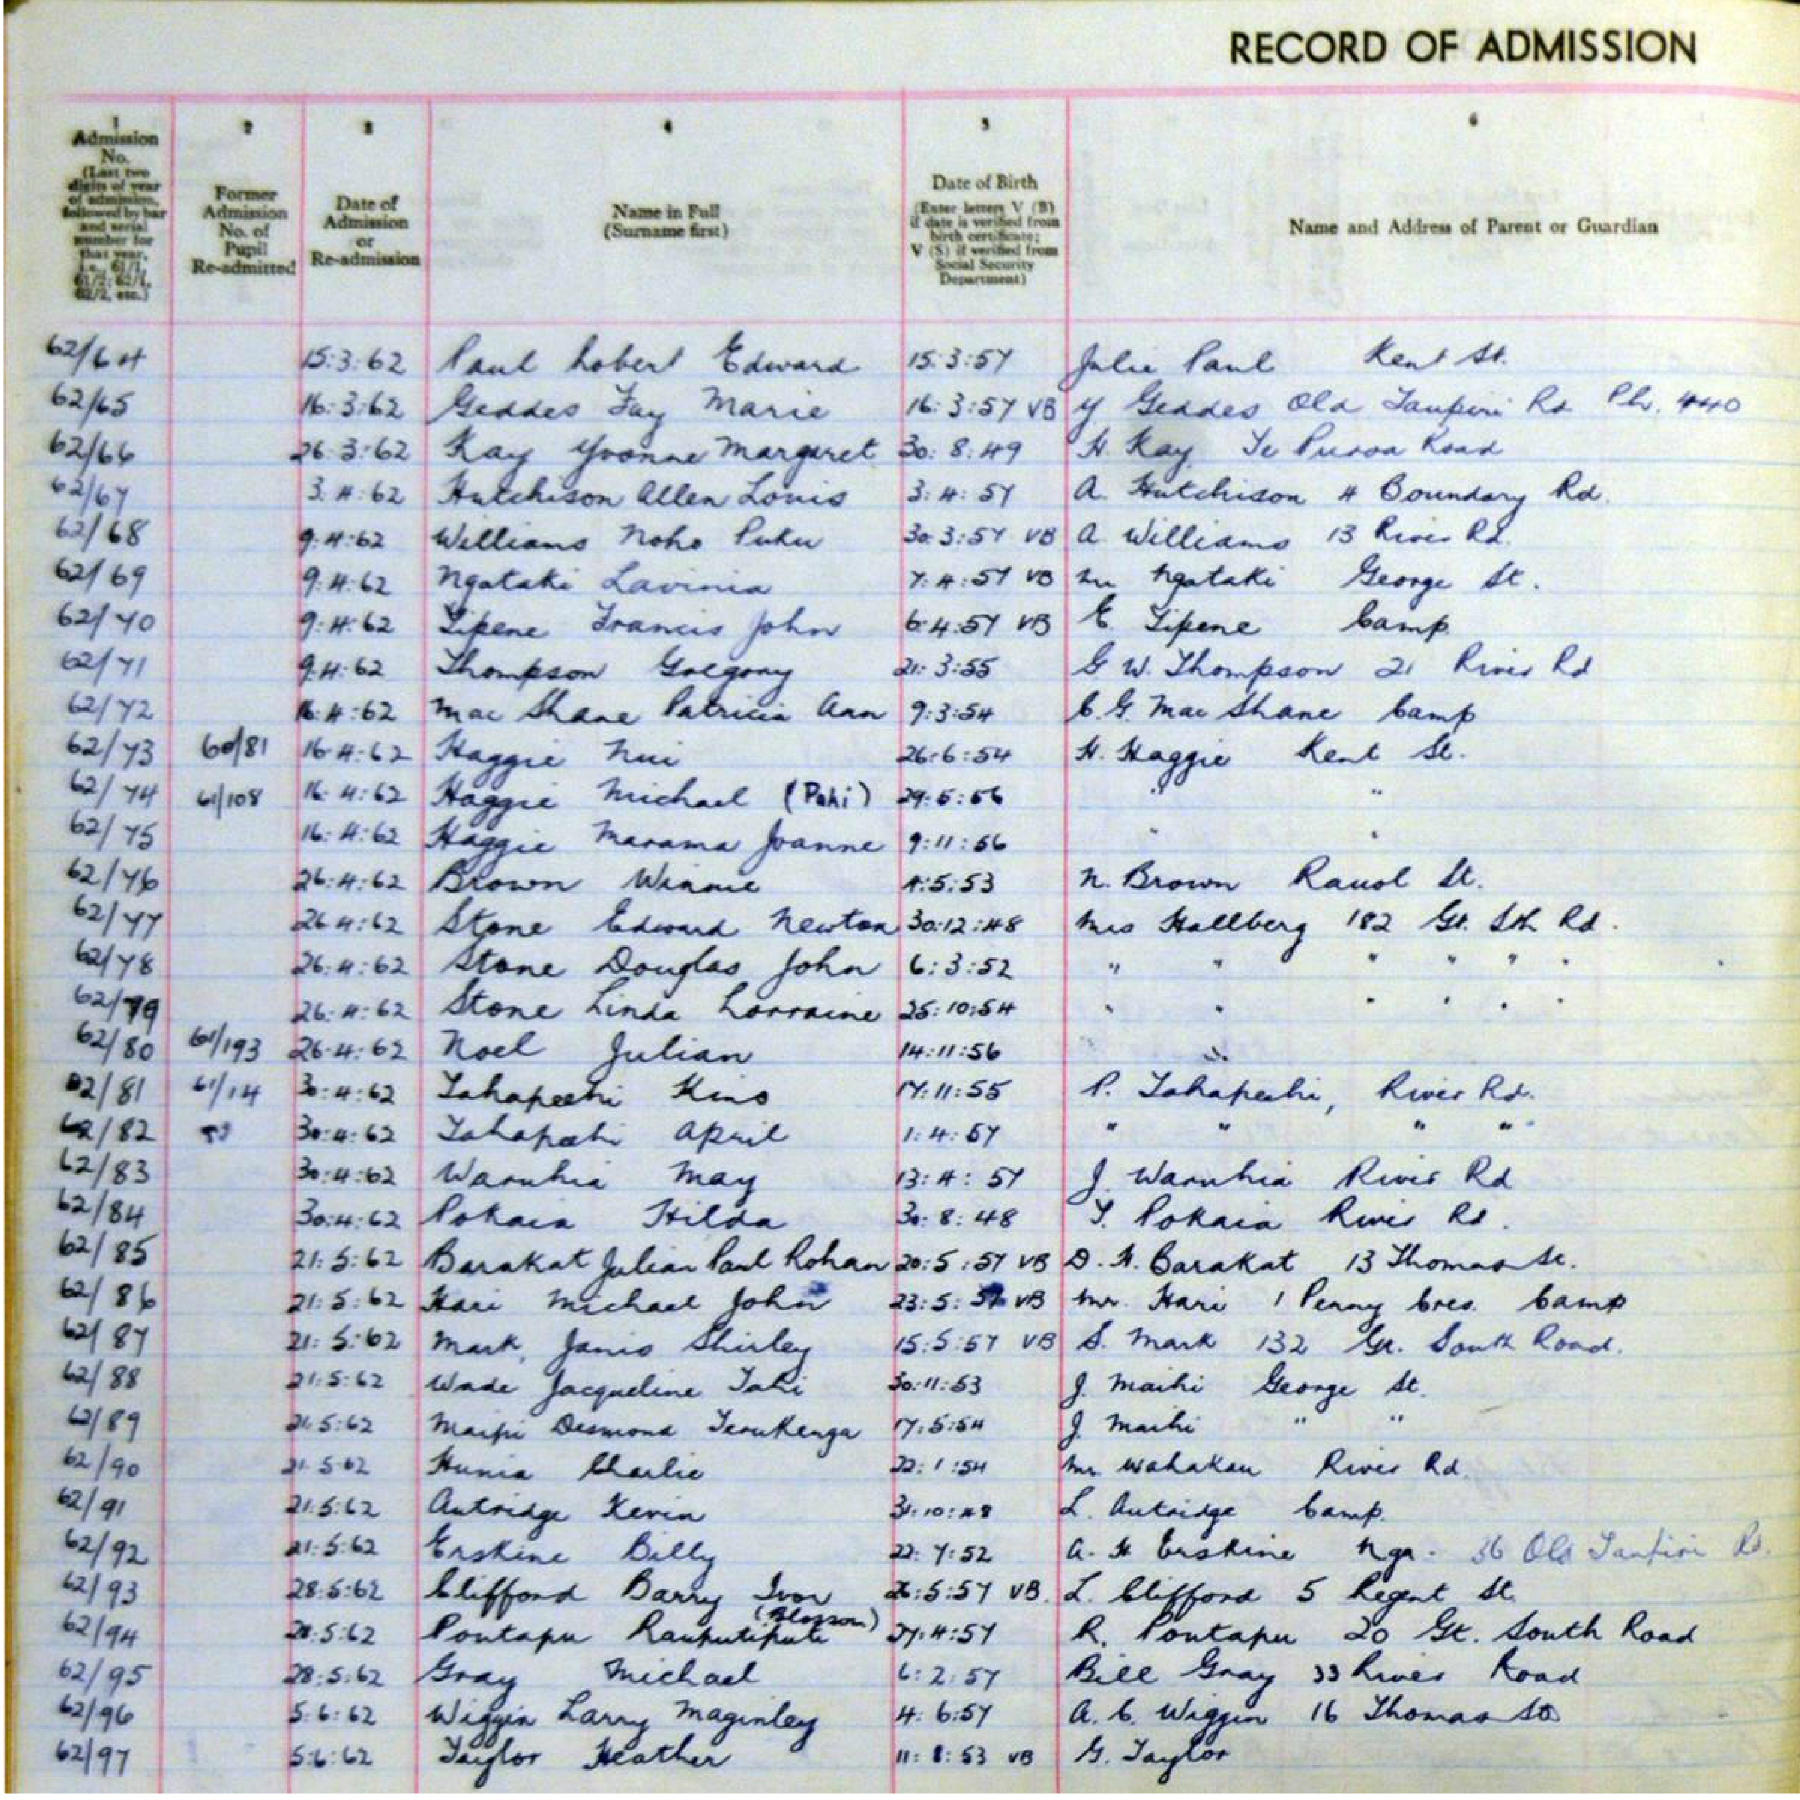 RECORD OF ADMISSION
1 2 3 4 5 6
Admission No. (Last two digits of year of admission, followed by bar and serial number for that year, i.e., 61/1, 61/2; 62/1, 62/2, etc.)
Former Admission No. of Pupil Re-admitted
Date of Admission or Re-admission
Name in Full (Surname first)
Date of Birth (Enter letters V (B) if date is verified from birth certificate; V (S) if verified from Social Security Department)
Name and Address of Parent or Guardian
62/64 15:3:62 Paul Robert Edward 15:3:57 Julie Paul Kent St.
62/65 16:3:62 Geddes Fay Marie 16:3:57 VB Geddes Old Taupiri Rd Ph. 440
62/66 26:3:62 Kay Yvonne Margaret 30:8:49 H. Kay Te Puroa Road
62/67 3:4:62 Hutchison Allen Louis 3:4:57 A. Hutchison 4 Boundary Rd.
62/68 9:4:62 Williams Noho Puku 30:3:57 VB A Williams 13 River Rd.
62/69 9:4:62 Ngataki Lavinia 7:4:57 VB Mr Ngataki George St.
62/70 9:4:62 Tipene Francis John 6:4:57 VB E Tipene Camp
62/71 9:4:62 Thompson Gregory 21:3:55 G W. Thompson 21 River Rd
62/72 16:4:62 Mac Shane Patricia Ann 9:3:54 C.G. Mac Shane Camp
62/73 60/81 16:4:62 Haggie Nui 26:6:54 H. Haggie Kent St.
62/74 61/108 16:4:62 Haggie Michael (Pehi) 29:5:56 " "
62/75 16:4:62 Haggie Marama Joanne 9:11:56 " "
62/76 26:4:62 Brown Winnie 4:5:53 N. Brown Rauol St.
62/77 26:4:62 Stone Edward Newton 30:12:48 Mrs Hallberg 182 Gt. Sth Rd.
62/78 26:4:62 Stone Douglas John 6:3:52 " " " " " "
62/79 26:4:62 Stone Linda Lorraine 25:10:54 " " " " " "
62/80 61/193 26:4:62 Noel Julian 14:11:56 " "
62/81 61/14 30:4:62 Tahapeehi Kino 17:11:55 P. Tahapeehi, River Rd.
62/82 30:4:62 Tahapeehi April 1:4:57 " " " "
62/83 30:4:62 Waruhia May 13:4:57 J. Waruhia River Rd
62/84 30:4:62 Pokaia Hilda 30:8:48 T. Pokaia River Rd.
62/85 21:5:62 Barakat Julian Paul Rohan 20:5:57 VB D.H. Barakat 13 Thomas St.
62/86 21:5:62 Hari Michael John 23:5:57 VB Mr. Hari 1 Penny Cres. Camp
62/87 21:5:62 Mark, Janis Shirley 15:5:57 VB S. Mark 132 Gt. South Road.
62/88 21:5:62 Wade Jacqueline Tahi 30:11:53 J. Maihi George St.
62/89 21:5:62 Maipi Desmond 17:5:54 J. Maihi " "
62/90 21:5:62 Hunia Charlie 22:1:54 Mr Wahakau River Rd.
62/91 21:5:62 Autridge Kevin 31:10:48 L. Autridge Camp.
62/92 21:5:62 Erskine Billy 22:7:52 A. H Erskine Nga. 36 Old Taupiri Rd.
62/93 28:5:62 Clifford Barry Ivor 26:5:57 VB. L. Clifford 5 Regent St.
62/94 28:5:62 Poutapu Rauputiputi (Blossom) 27:4:57 R. Poutapu 20 Gt. South Road
62/95 28:5:62 Gray Michael 6:2:57 Bill Gray 33 River Road
62/96 5:6:62 Wiggin Larry Maginley 4:6:57 A.C. Wiggin 16 Thomas St
62/97 5:6:62 Taylor Heather 11:8:53 VB G. Taylor